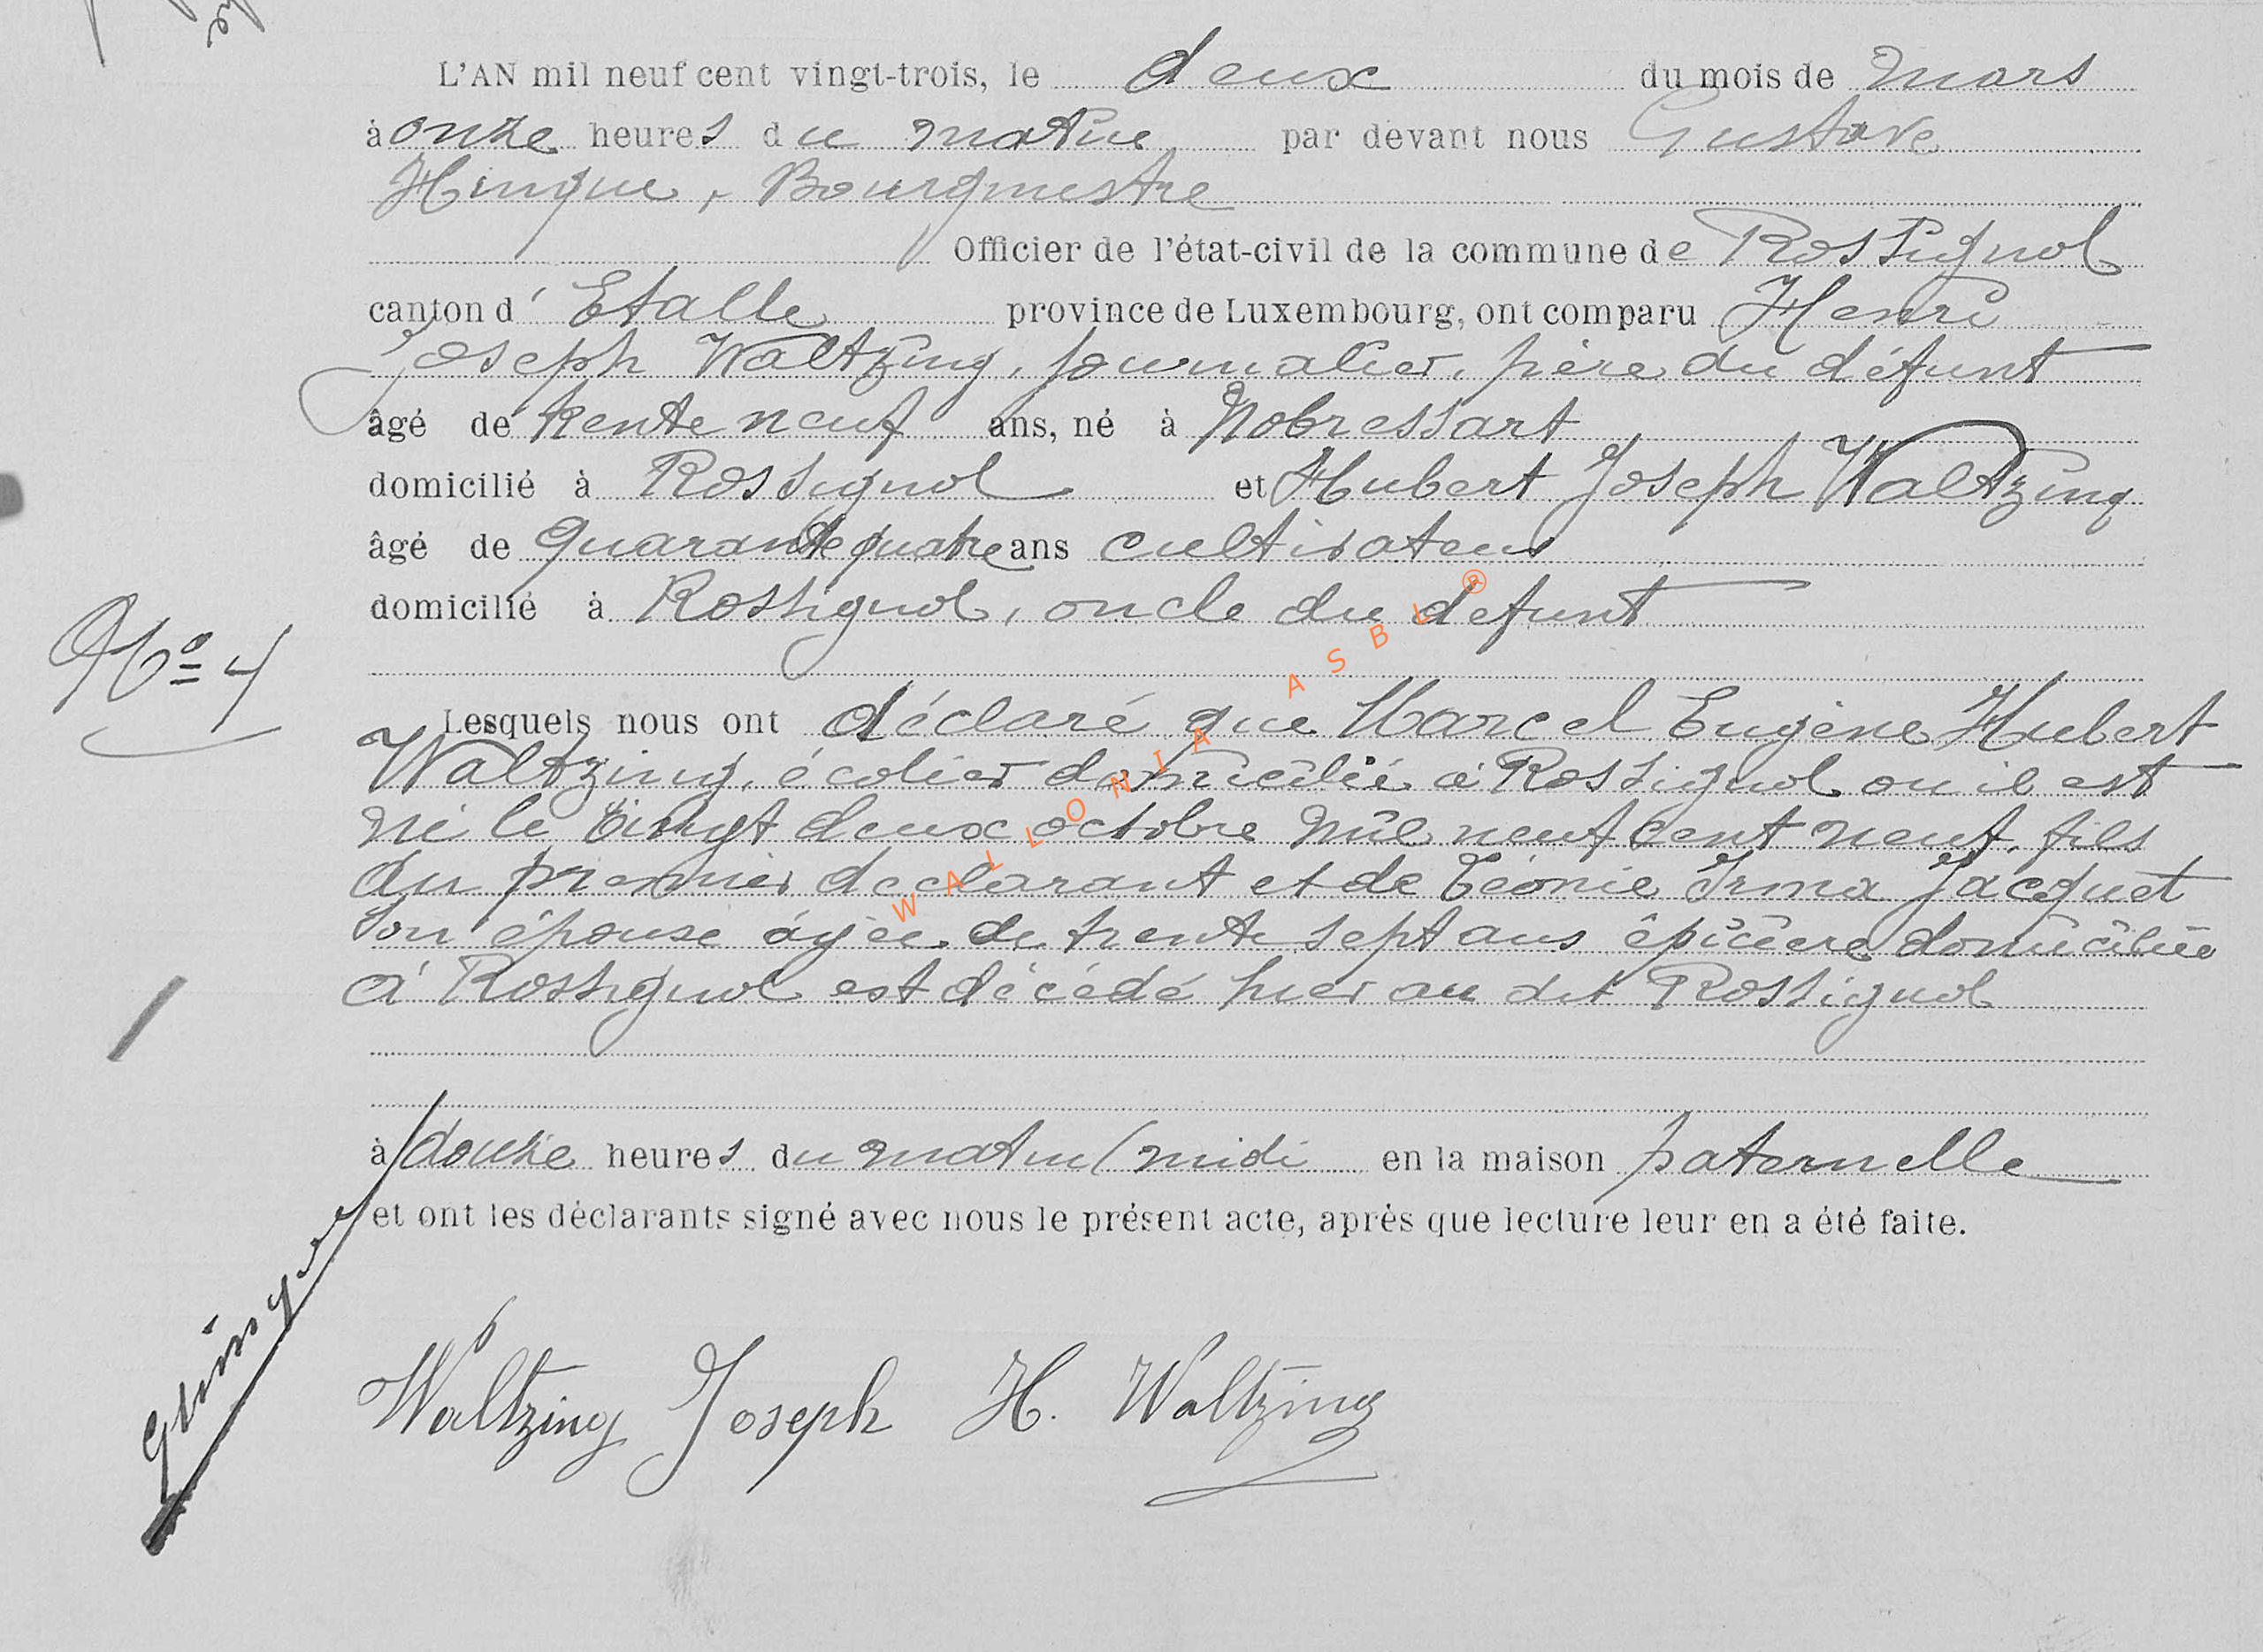 L'AN mil neuf cent vingt-trois, le deux du mois de mars
à onze heures du matin par devant nous Gustave
Hinque, Bourgmestre
Officier de l'état-civil de la commune de Rossignol
canton d' Etalle province de Luxembourg, ont comparu Henri
Joseph Waltzing, journalier, père du défunt
âgé de trente neuf ans, né à Nobressart
domicilié à Rossignol et Hubert Joseph Waltzing
âgé de quarante quatre ans cultivateur
domicilié à Rossignol, oncle du defunt
No 4
Lesquels nous ont déclaré que Marcel Eugène Hubert
Waltzing, écolier domicilié à Rossignol ou il est
né le vingt deux octobre mil neuf cent neuf, fils
du premier declarant et de Léonie Irma Jacquet
son épouse âgée de trente sept ans épicière domiciliée
à Rossignol est décédé hier au dit Rossignol
à douze heures du matin (midi en la maison paternelle
et ont les déclarants signé avec nous le présent acte, après que lecture leur en a été faite.
Waltzing Joseph H. Waltzing
WALLONIA ASBL ®